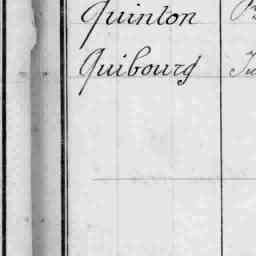 Quinton
Quibourg